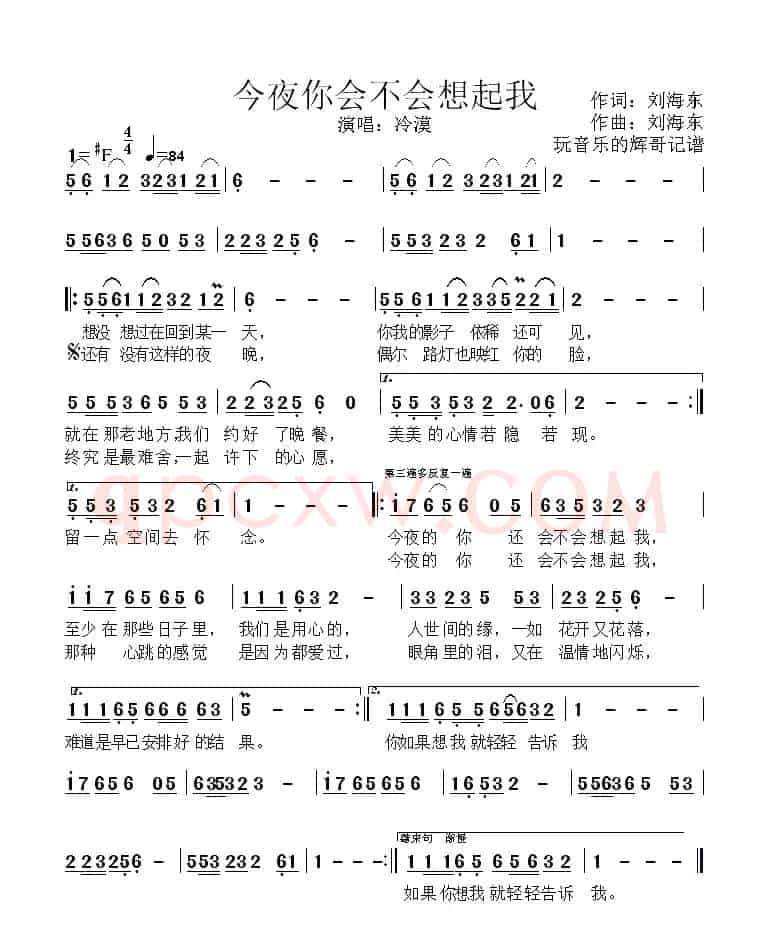 今夜你会不会想起我
作词：刘海东
演唱：冷漠
作曲：刘海东
玩音乐的辉哥记谱
1=#F 4/4 ♩=84
5 6 1 2 3 2 3 1 2 1 | 6 - - - | 5 6 1 2 3 2 3 1 2 1 | 2 - - - |
5 5 5 6 3 6 5 0 5 3 | 2 2 3 2 5 6 - | 5 5 5 3 2 3 2 6 1 | 1 - - - |
‖: 5 5 6 1 1 2 3 2 1 2 | 6 - - - | 5 5 6 1 1 2 3 3 5 2 2 1 | 2 - - - |
想没 想过在回到某一 天， 你我的影子 依稀 还可 见，
还有 没有这样的夜 晚， 偶尔 路灯也映红 你的 脸，
5 5 5 5 3 6 5 5 3 | 2 2 3 2 5 6 0 | 1. 5 5 3 5 3 2 2. 0 6 | 2 - - - :‖
就在 那老地方，我们 约好 了晚餐， 美美 的心情若 隐 若 现。
终究 是最难舍，一起 许下 的心愿，
2. 5 5 3 5 3 2 6 1 | 1 - - - ‖: 第三遍多反复一遍 1 7 6 5 6 0 5 | 6 3 5 3 2 3 - |
留一点 空间去 怀 念。 今夜的 你 还 会不会想 起 我，
今夜的 你 还 会不会想 起 我，
1 1 7 6 5 6 5 6 | 1 1 1 6 1 - | 3 3 2 3 5 5 3 | 2 3 2 5 6 - |
至少 在 那些 日子 里， 我们 是用心的， 人世间的缘，一如 花开又花落，
那种 心跳的感觉 是因为都爱过， 眼角里的泪，又在 温情地闪烁，
1. 1 1 1 6 5 6 6 6 6 3 | 5 - - - :‖ 2. 1 1 1 6 5 6 5 6 5 6 3 2 | 1 - - - |
难道是早已安排好 的结 果。 你如果想我就轻轻 告诉 我
1 7 6 5 6 0 5 | 6 3 5 3 2 3 - | 1 7 6 5 6 6 5 | 1 6 5 3 2 - | 5 5 5 6 3 6 5 5 3 |
2 2 3 2 5 6 - | 5 5 5 3 2 3 2 6 1 | 1 - - - :‖ 结束句 渐慢 1 1 1 6 5 6 5 6 3 2 | 1 - - - ‖
如果 你想我 就轻轻告诉 我。
qpcxw.COM